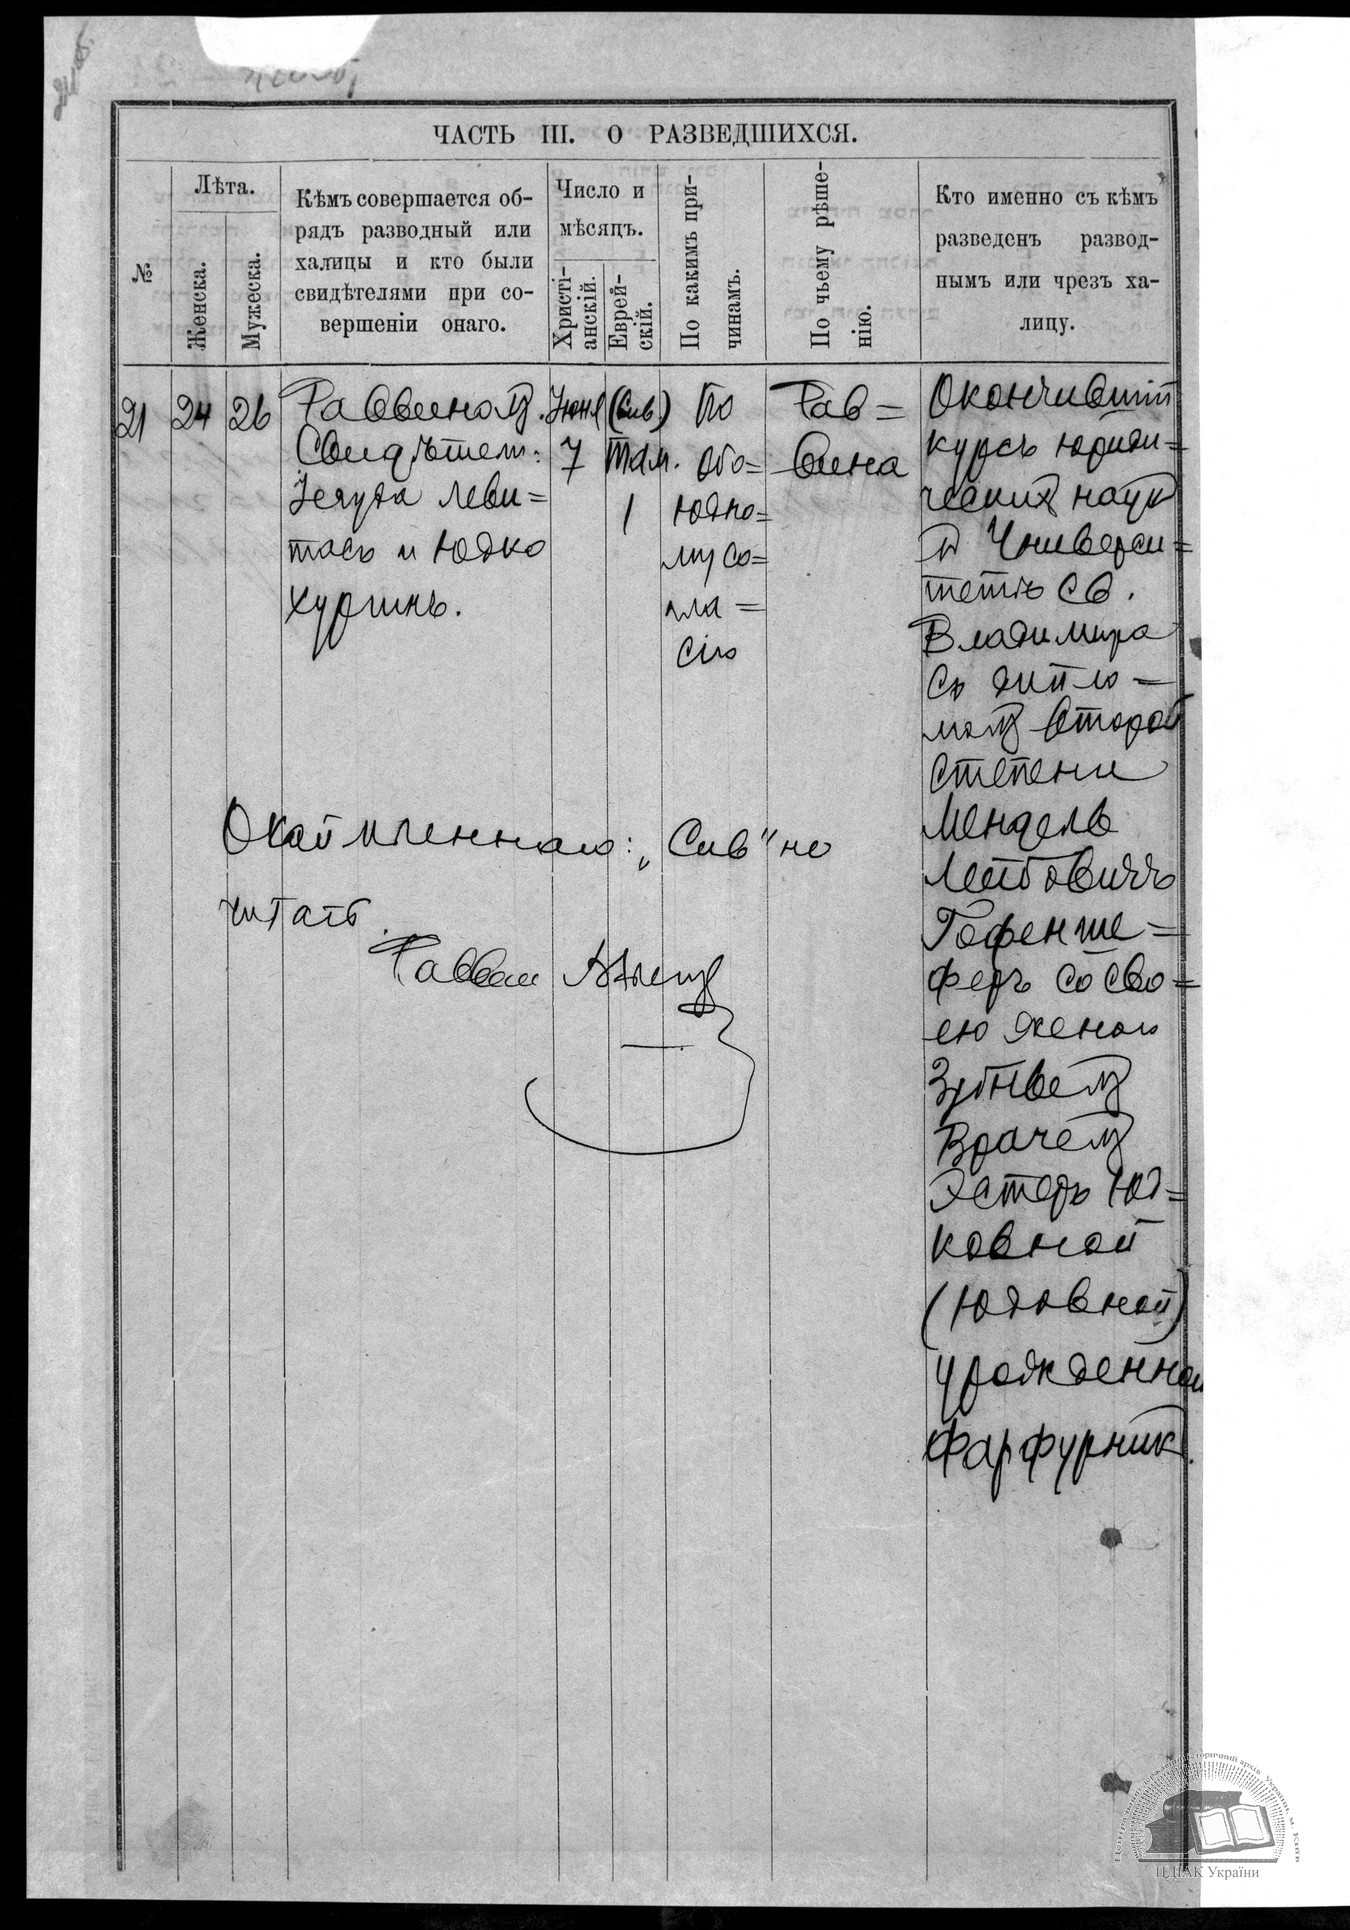 ЧАСТЬ III. О РАЗВЕДШИХСЯ.
№
Лѣта.
Женска.
Мужеска.
Кѣмъ совершается об-
рядъ разводный или
халицы и кто были
свидѣтелями при со-
вершеніи онаго.
Число и
мѣсяцъ.
Христі-
анскій.
Еврей-
скій.
По какимъ при-
чинамъ.
По чьему рѣше-
нію.
Кто именно съ кѣмъ
разведенъ развод-
нымъ или чрезъ ха-
лицу.
21
24
26
Раввиномъ.
Свидѣтели:
Леви=
тасъ и Юдко
Хургинъ.
Іюня
7
(Сив)
Там.
1
По
обо=
юдно=
му со=
гла=
сію
Рав=
вина
Окончившій
курсъ юриди=
ческихъ наукъ
въ Универси=
тетѣ Св.
Владимира
съ дипло=
момъ второй
степени
Мендель
Лейбовичъ
Гофенше=
феръ со сво=
ею женою
Зубнымъ
Врачемъ
Эстеръ Юд=
ковной
(Юдовной)
урожденной
Фарфурникъ.
Окаймленнаго: „Сив" не
читать.
Раввинъ
ЦДІАК України